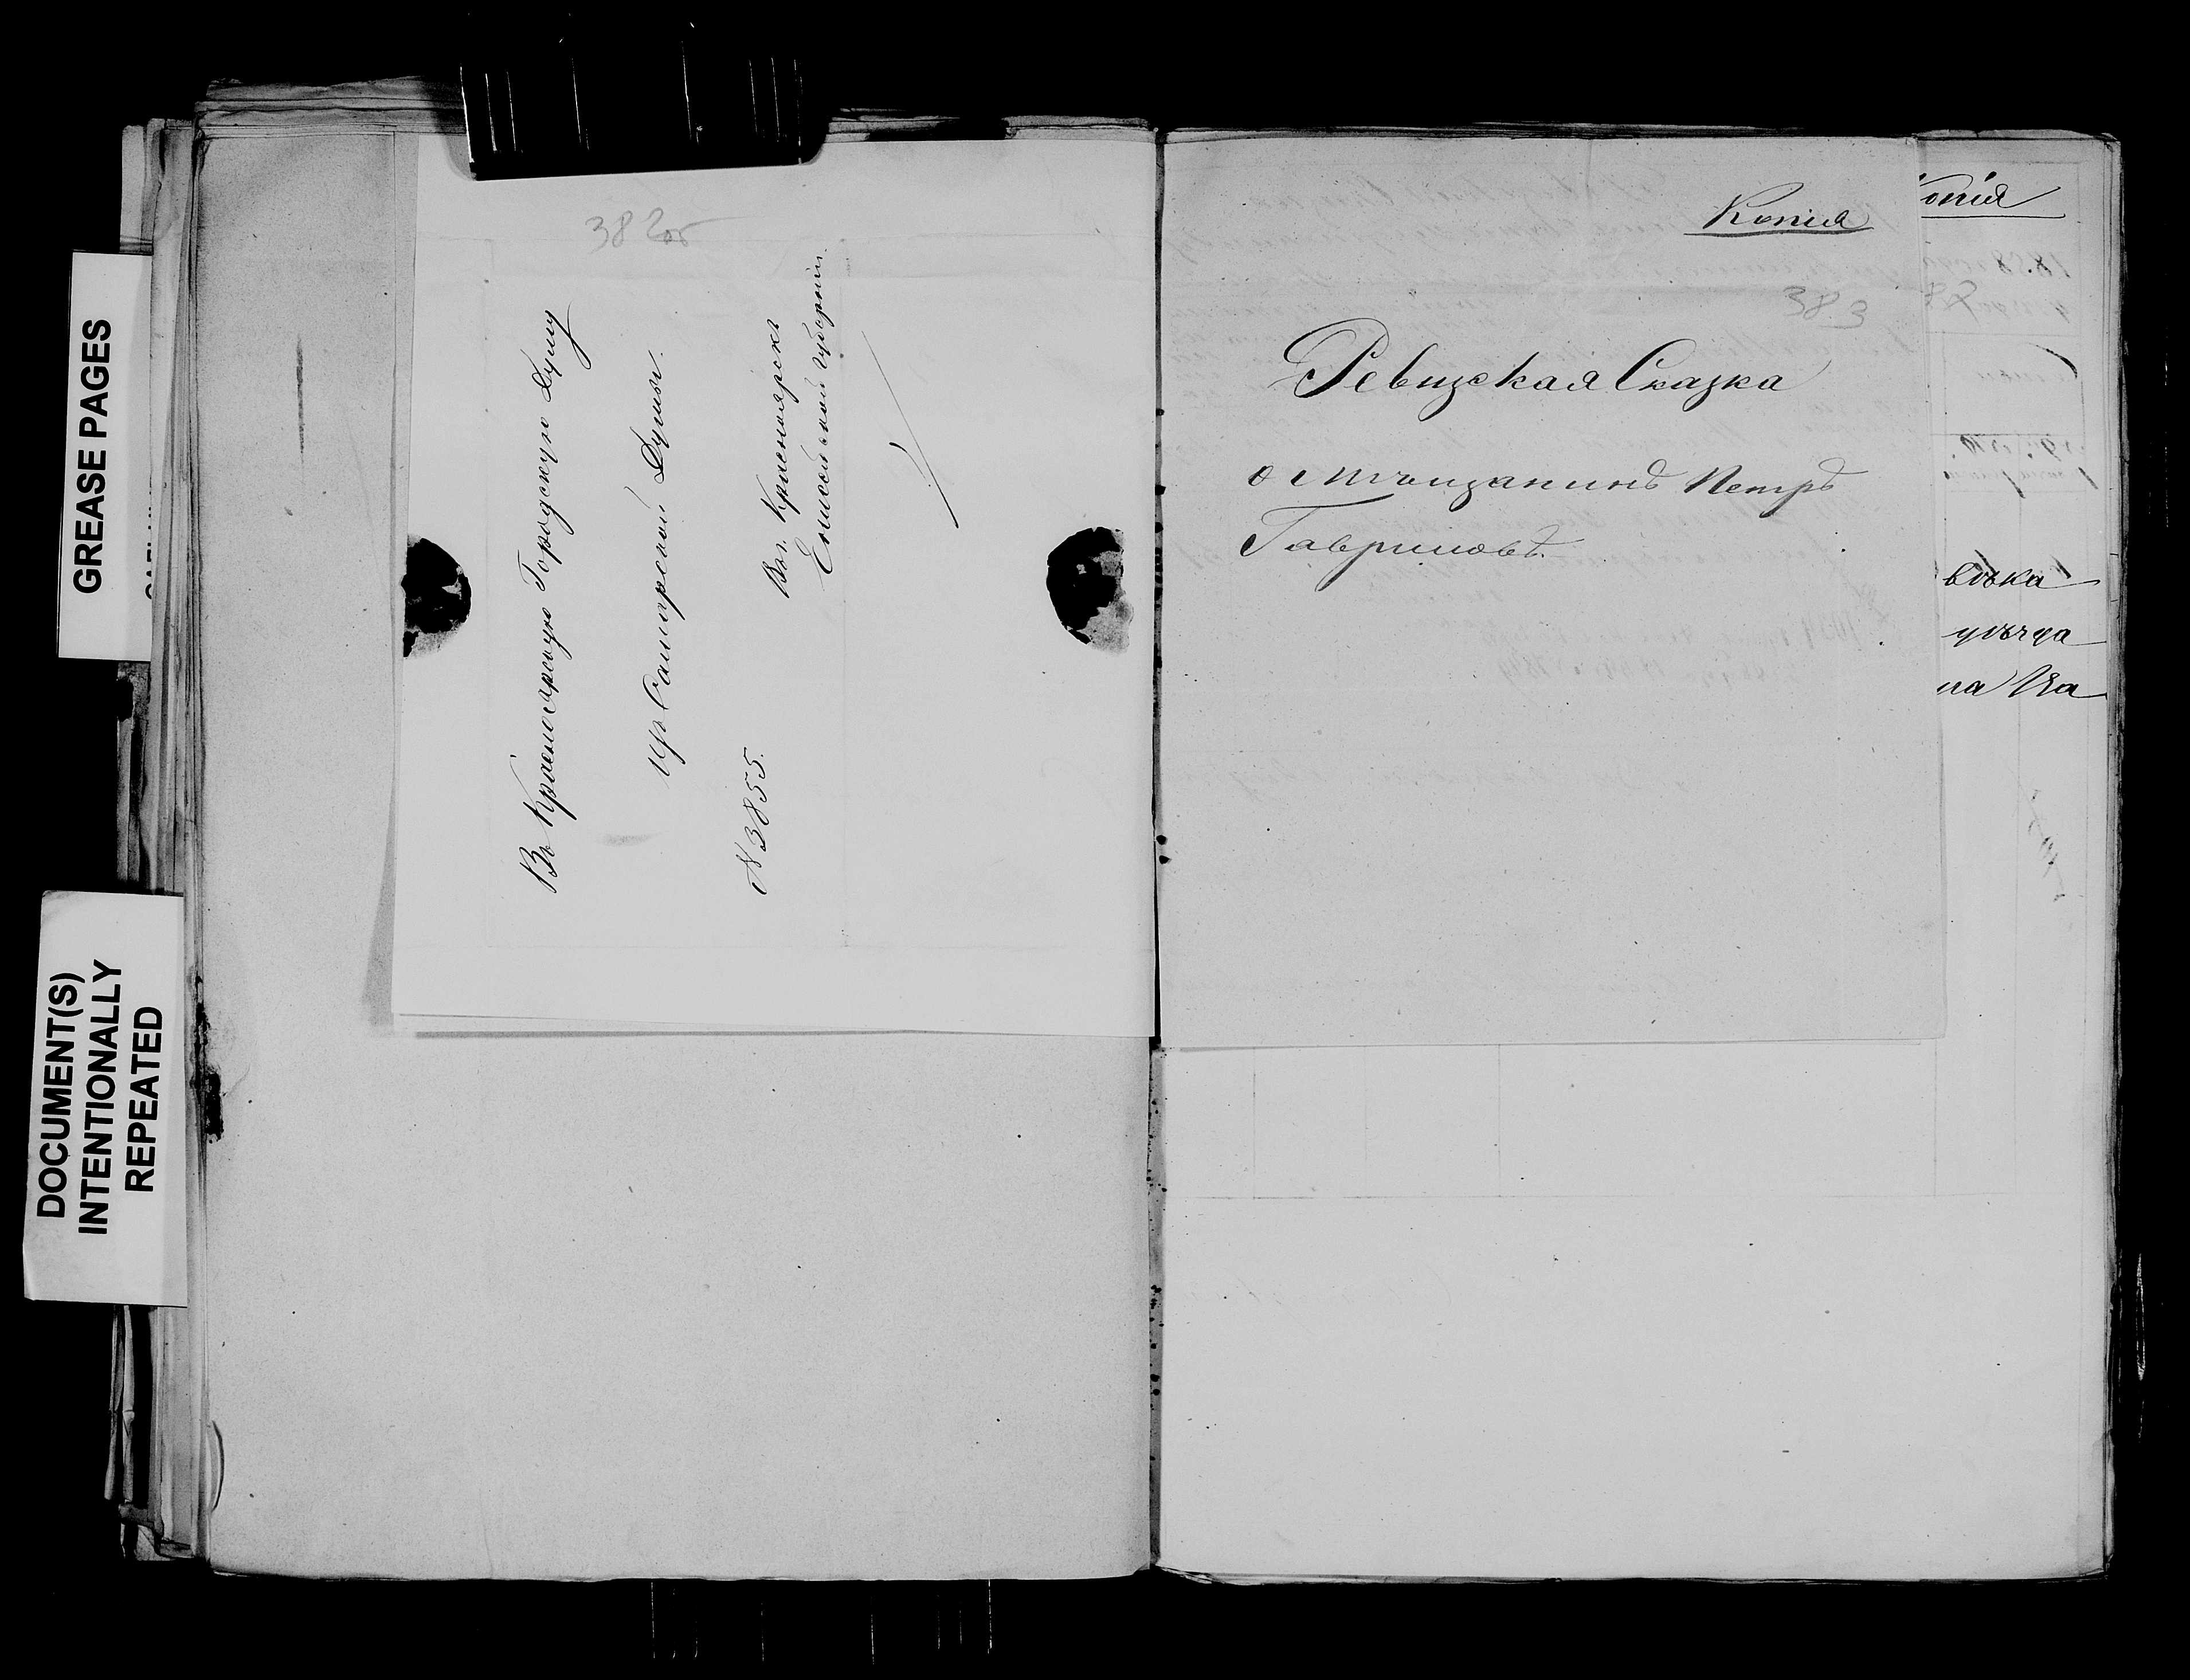 GREASE PAGES
DOCUMENT(S)
INTENTIONALLY
REPEATED
382об
Въ Красноярскую Городскую Думу
Изъ Самарской Думы.
№ 3855.
Въ г. Красноярскъ
Енисейской Губерніи.
Копія
383
Ревизская Сказка
о Мѣщанинѣ Петрѣ
Гавриловѣ.
опія
вѣка
уѣзда
на Ива